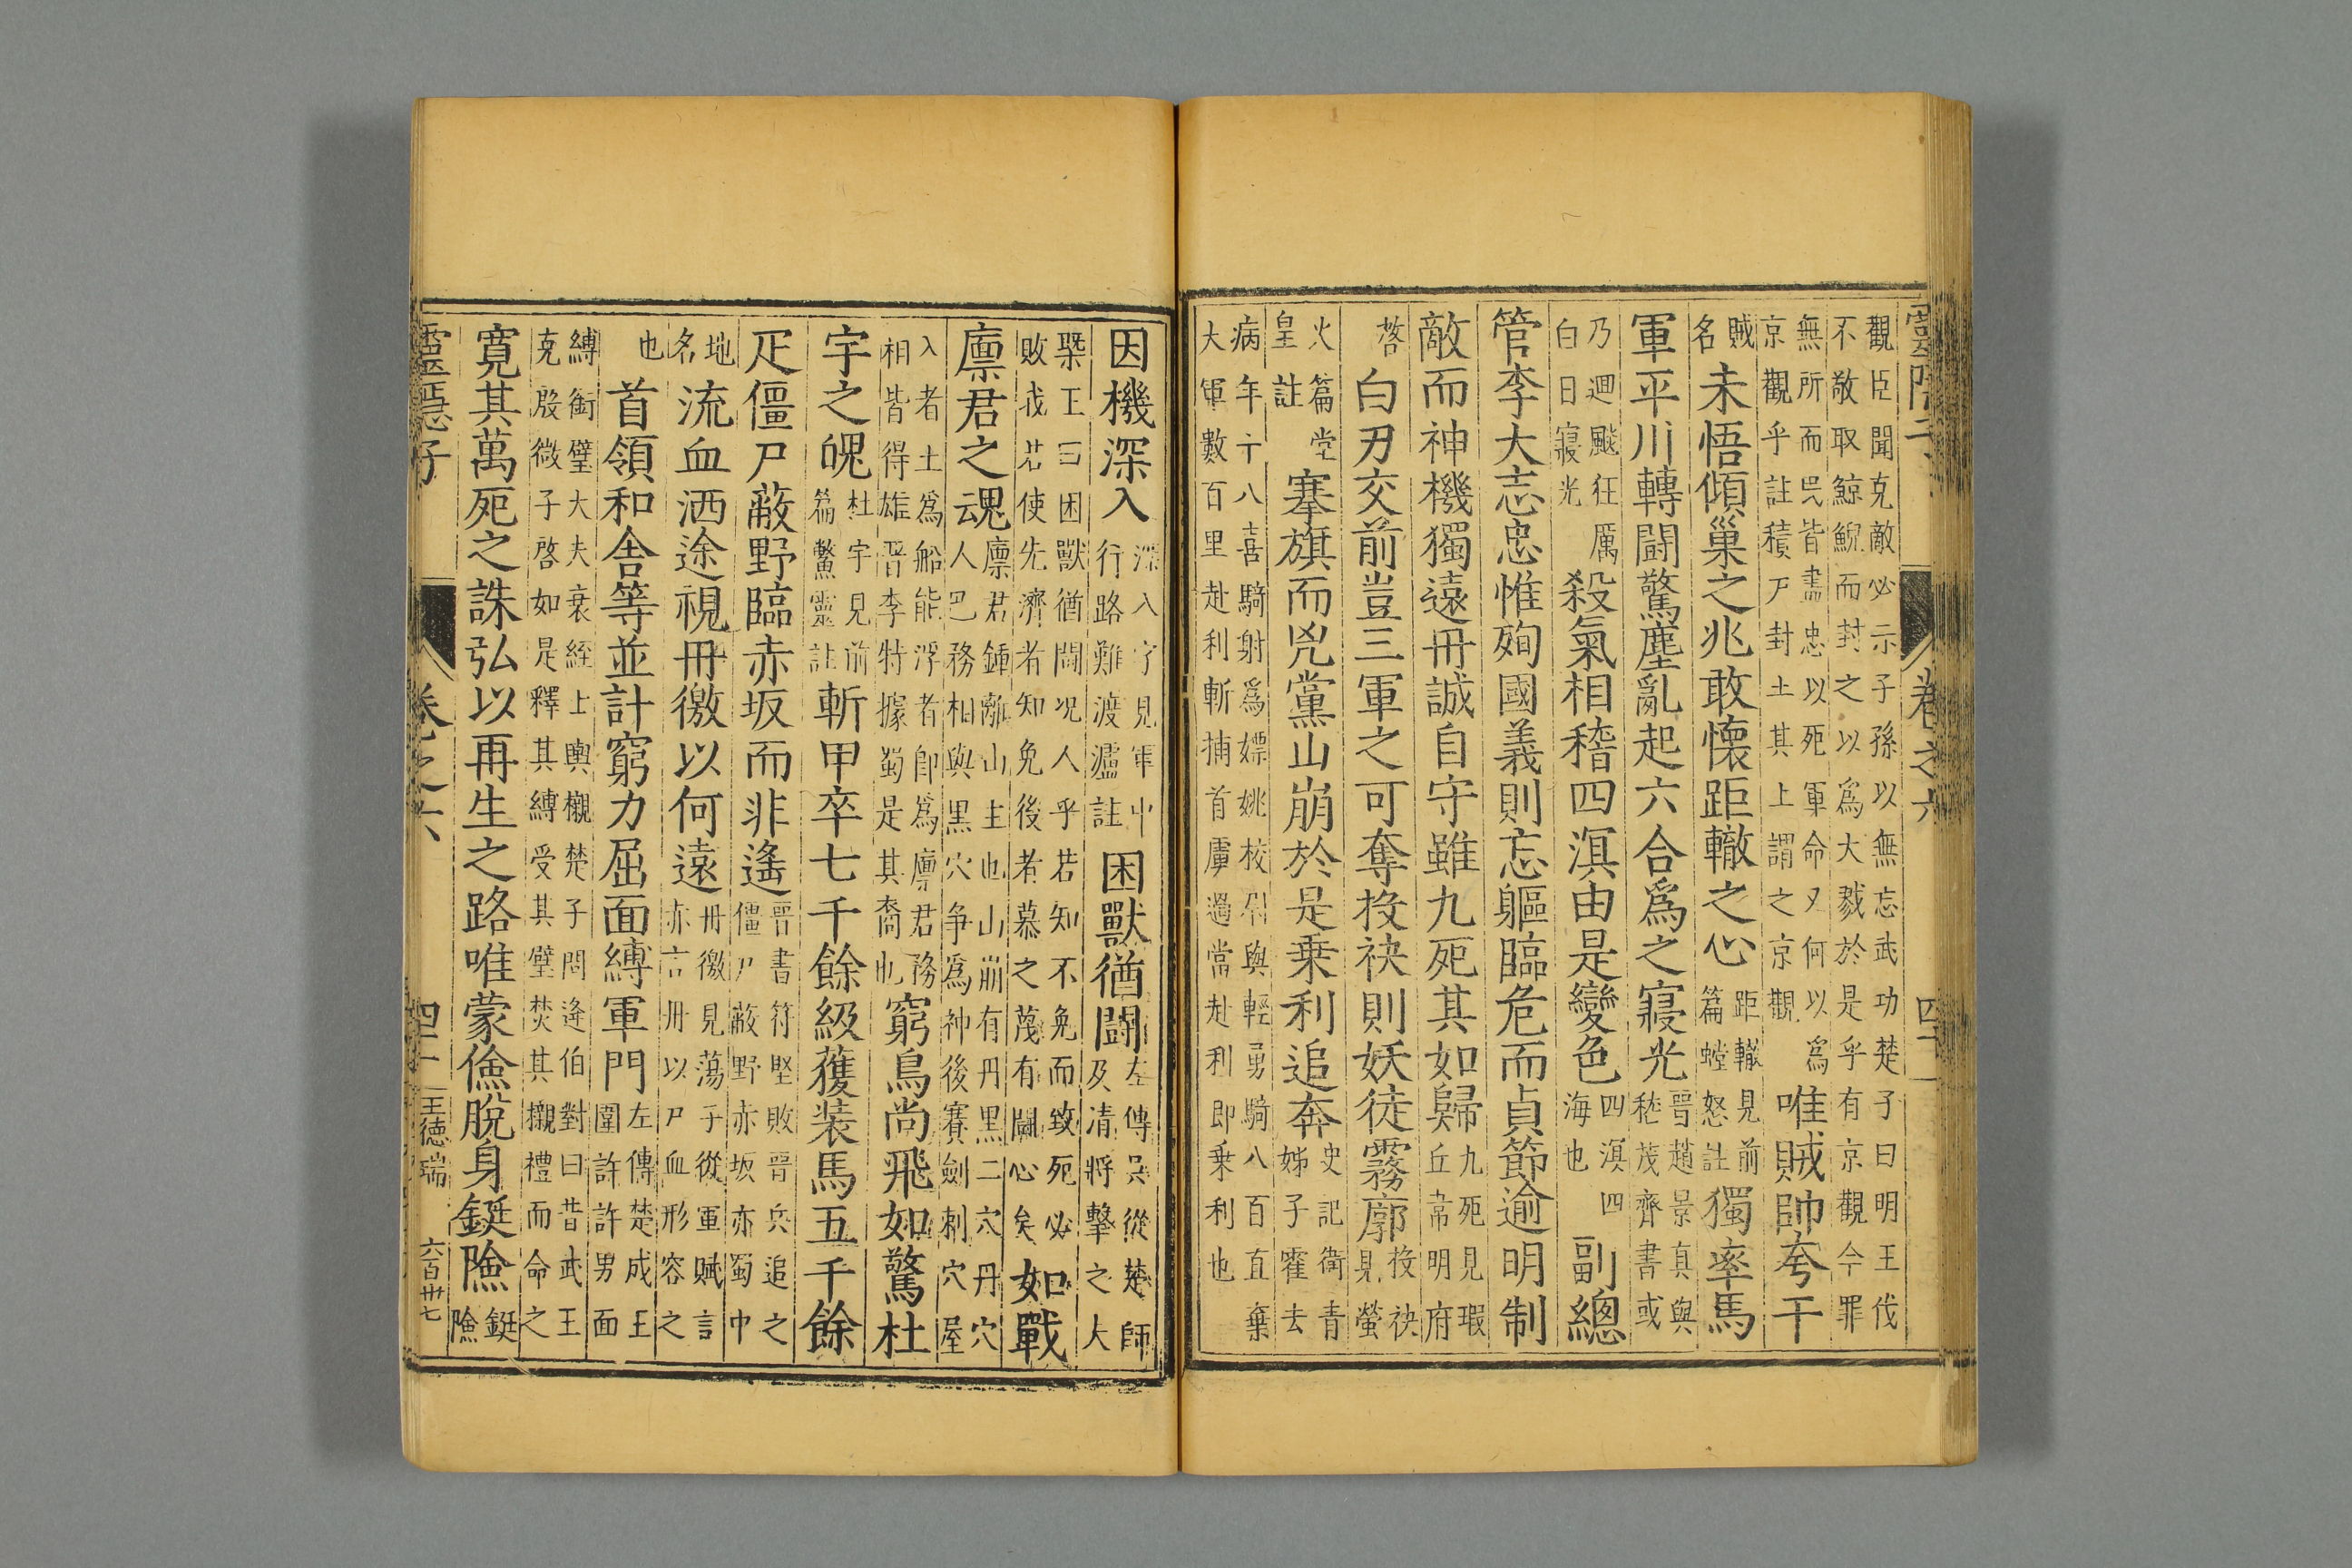 卷之六
觀臣聞克敵必示子孫以無忘武功楚子曰明王伐
不敬取鯨鯢而封之以爲大戮於是乎有京觀今罪
無所而民皆盡忠以死軍命又何以爲
京觀乎註積尸封土其上謂之京觀
唯賊帥夸干
賊
名
未悟傾巢之兆敢懷距轍之心
距轍見前
篇螳怒註
獨率馬
軍平川轉鬪驚塵亂起六合爲之寢光
晉趙景真與
嵇茂齊書或
乃迴飇狂厲
白日寢光
殺氣相稽四溟由是變色
四溟四
海也
副總
管李大志忠惟殉國義則忘軀臨危而貞節逾明制
敵而神機獨遠冊誠自守雖九死其如歸
九死見瑕
丘常明府
啓
白刃交前豈三軍之可奪投袂則妖徒霧廓
投袂
見螢
火篇堂
皇註
搴旗而兇黨山崩於是乗利追奔
史記衛青
姊子霍去
病年十八喜騎射爲嫖姚校尉與輕勇騎八百直棄
大軍數百里赴利斬捕首虜過當赴利即乗利也
因機深入
深入了見軍中
行路難渡瀘註
困獸猶闘
左傳吳從楚師
及清將擊之大
槩王曰困獸猶鬪况人乎若知不免而致死必
敗我若使先濟者知免後者慕之蔑有鬪心矣
如戰
廪君之魂
廪君鍾離山主也山崩有丹黒二穴丹穴
人巴務相與黒穴争爲神後賽劍刺穴屋
入者土爲船能浮者即爲廪君務
相皆得雄晉李特據蜀是其裔也
窮鳥尚飛如驚杜
宇之魄
杜宇見前
篇鱉靈註
斬甲卒七千餘級獲装馬五千餘
疋僵尸蔽野臨赤坂而非遙
晉書符堅敗晉兵追之
僵尸蔽野赤坂亦蜀中
地
名
流血洒途視冊徼以何遠
冊徼見蕩子從軍賦言
赤言冊以尸血形容之
也
首領和舍等並計窮力屈面縛軍門
左傳楚成王
圍許許男面
縛銜璧大夫衰絰上輿櫬楚子問逄伯對曰昔武王
克殷微子啓如是釋其縛受其璧焚其櫬禮而命之
寛其萬死之誅弘以再生之路唯蒙儉脫身鋌險
鋌
險
靈隱子 卷之六 四十一 王德瑞 六百卅七